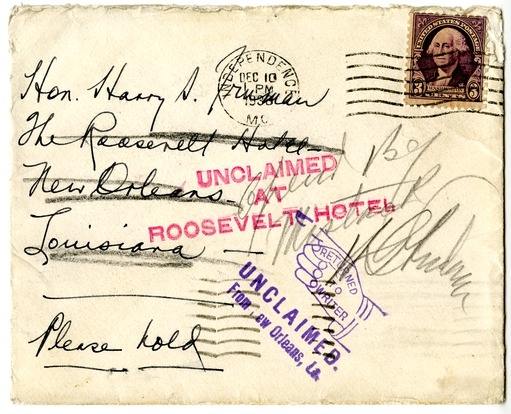 UNITED STATES POSTAGE
3 3
WASHINGTON
INDEPENDENCE
DEC 10
PM
MO.
Hon. Harry S. Truman
The Roosevelt Hotel
New Orleans
Louisiana
UNCLAIMED
AT
ROOSEVELT HOTEL
RETURNED
TO
WRITER
UNCLAIMED.
From New Orleans, La.
Please hold